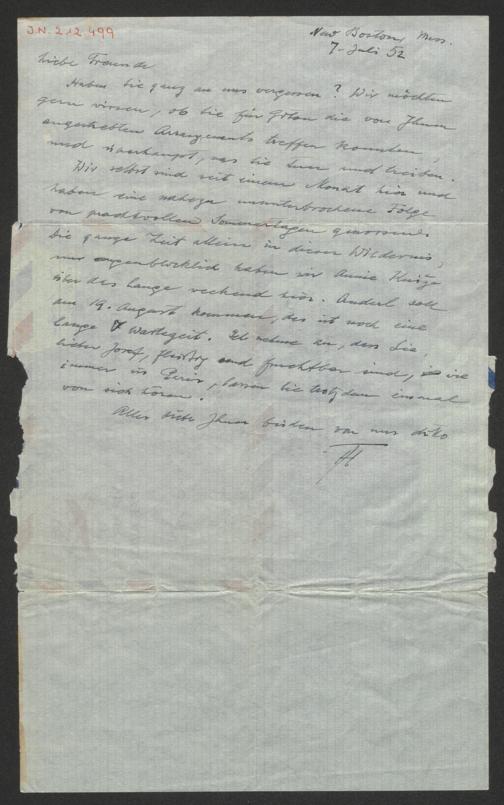 J.N. 212.499
New Boston, Mass.
7. Juli 52
Liebe Freunde
Haben Sie ganz an uns vergessen? Wir möchten
gern wissen, ob Sie für die von Ihnen
angestrebten Arrangements treffen konnten,
und überhaupt, was Sie tun und treiben.
Wir selbst sind seit einem Monat hier und
haben eine nahezu ununterbrochene Folge
von prachtvollen Sommertagen genossen.
Die ganze Zeit allein in dieser Wildernis,
nur augenblicklich haben wir Annie
über das lange weekend hier. Anderl soll
am 19. August kommen, das ist noch eine
lange Wartezeit. Ich nehme an, dass Sie,
lieber Josef, fleißig und fruchtbar sind, wie
immer in Paris, lassen Sie trotzdem einmal
von sich hören.
Alles Liebe Ihnen beiden von uns